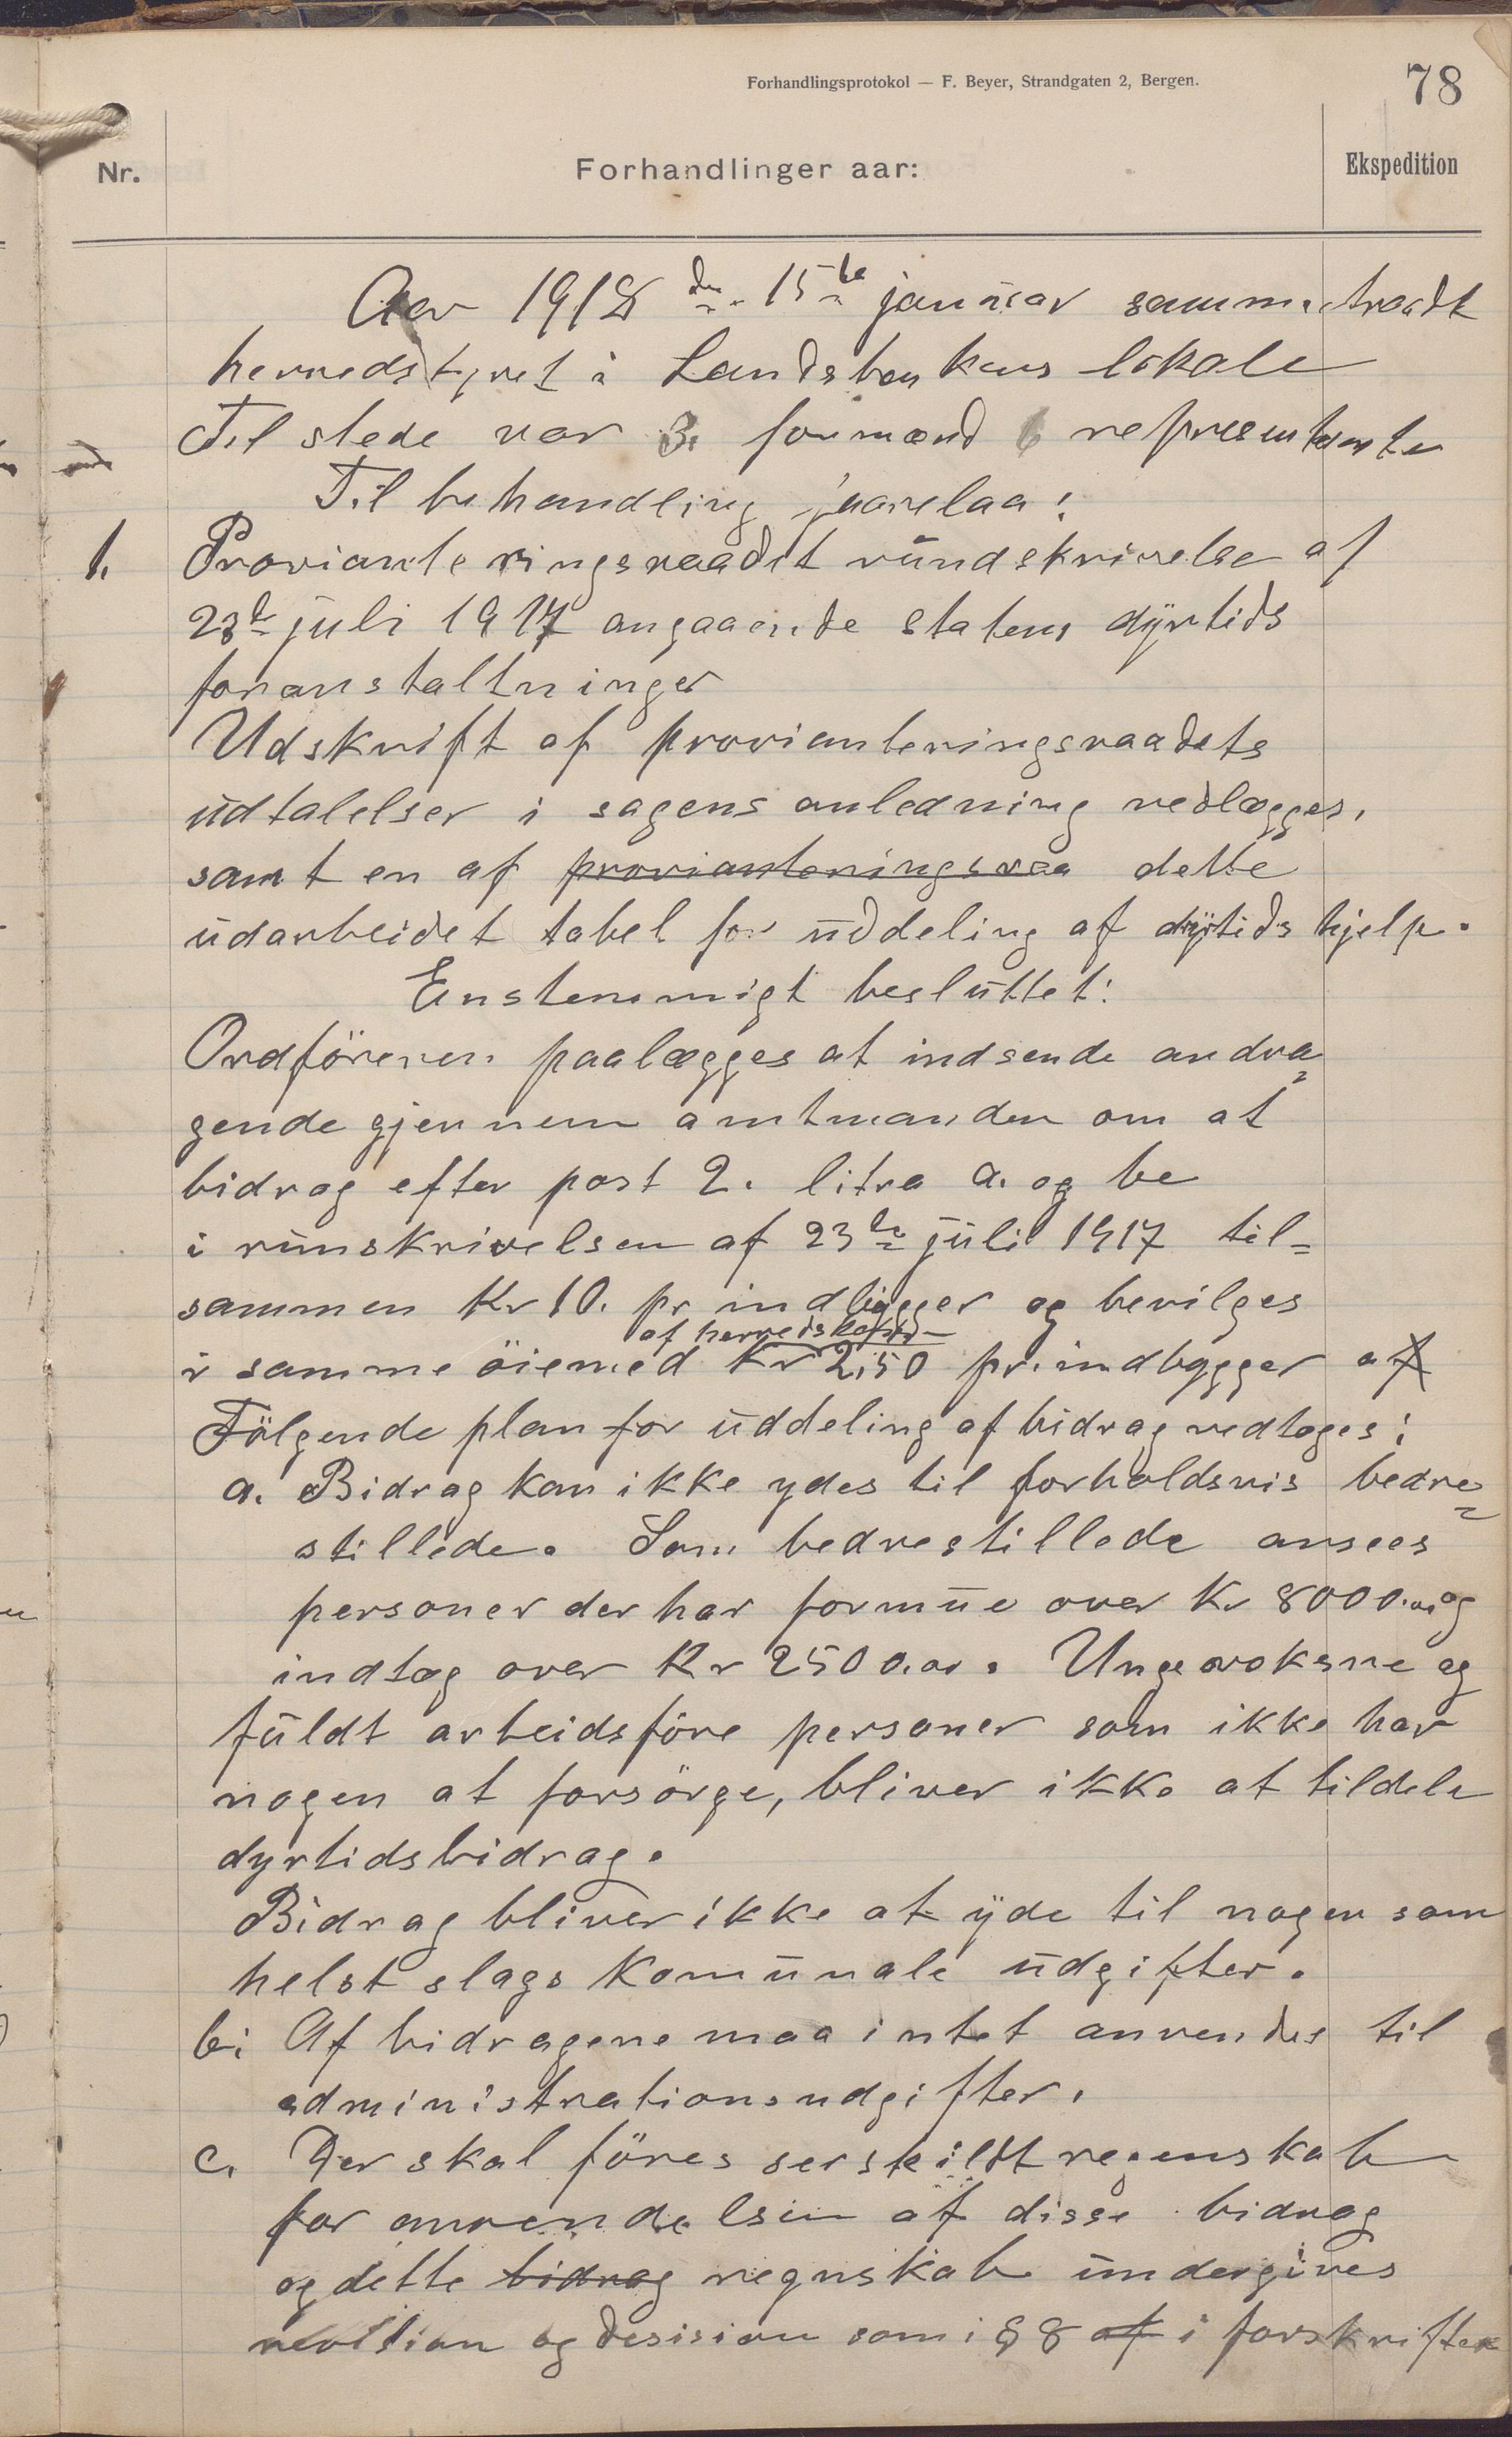 Forhandlingsprotokol — F. Beyer, Strandgaten 2, Bergen.
78
Nr.
Forhandlinger aar:
Ekspedition
Aar 1918 den 15de januar sammentraadt
herredstyret i Landsbankens lokale
Til stede var 3. formænd 6 repræsentanter
Til behandling forelaa:
1. Provianteringsraadet rundskrivelse af
23de juli 1917 angaaende statens dyrtids
foranstaltninger
Udskrift af provianteringsraadets
udtalelser i sagens anledning vedlægges,
samt en af provianteringsraa dette
udarbeidet tabel for uddeling af dyrtids hjelp.
Enstemmigt besluttet:
Ordföreren paalægges at indsende andra=
gende gjennem amtmanden om at
bidrag efter post 2. litra a. og be
i runskrivelsen af 23de juli 1917 til=
sammen Kr 10. pr indbygger og bevilges
af herredskassen
i samme öiemed Kr 2,50 pr. indbygger af
Fölgende plan for uddeling af bidrag vedtoges:
a. Bidrag kan ikke ydes til forholdsvis bedre=
stillede. Som bedrestillede ansees
personer der har formue over Kr 8000.00 og
indtæg over Kr 2500.00. Unge voksne og
fuldt arbeidsföre personer som ikke har
nogen at forsörge, bliver ikke at tildele
dyrtidsbidrag.
Bidrag bliver ikke at yde til nogen som
helst slags komunale udgifter.
b. Af bidragene maa intet anvendes til
administrationsudgifter.
c. Der skal föres serskildt regenskab
for anvendelsen af disse bidrag
og dette bidrag regnskab undergives
og desision som i § 8 af i forskrifter